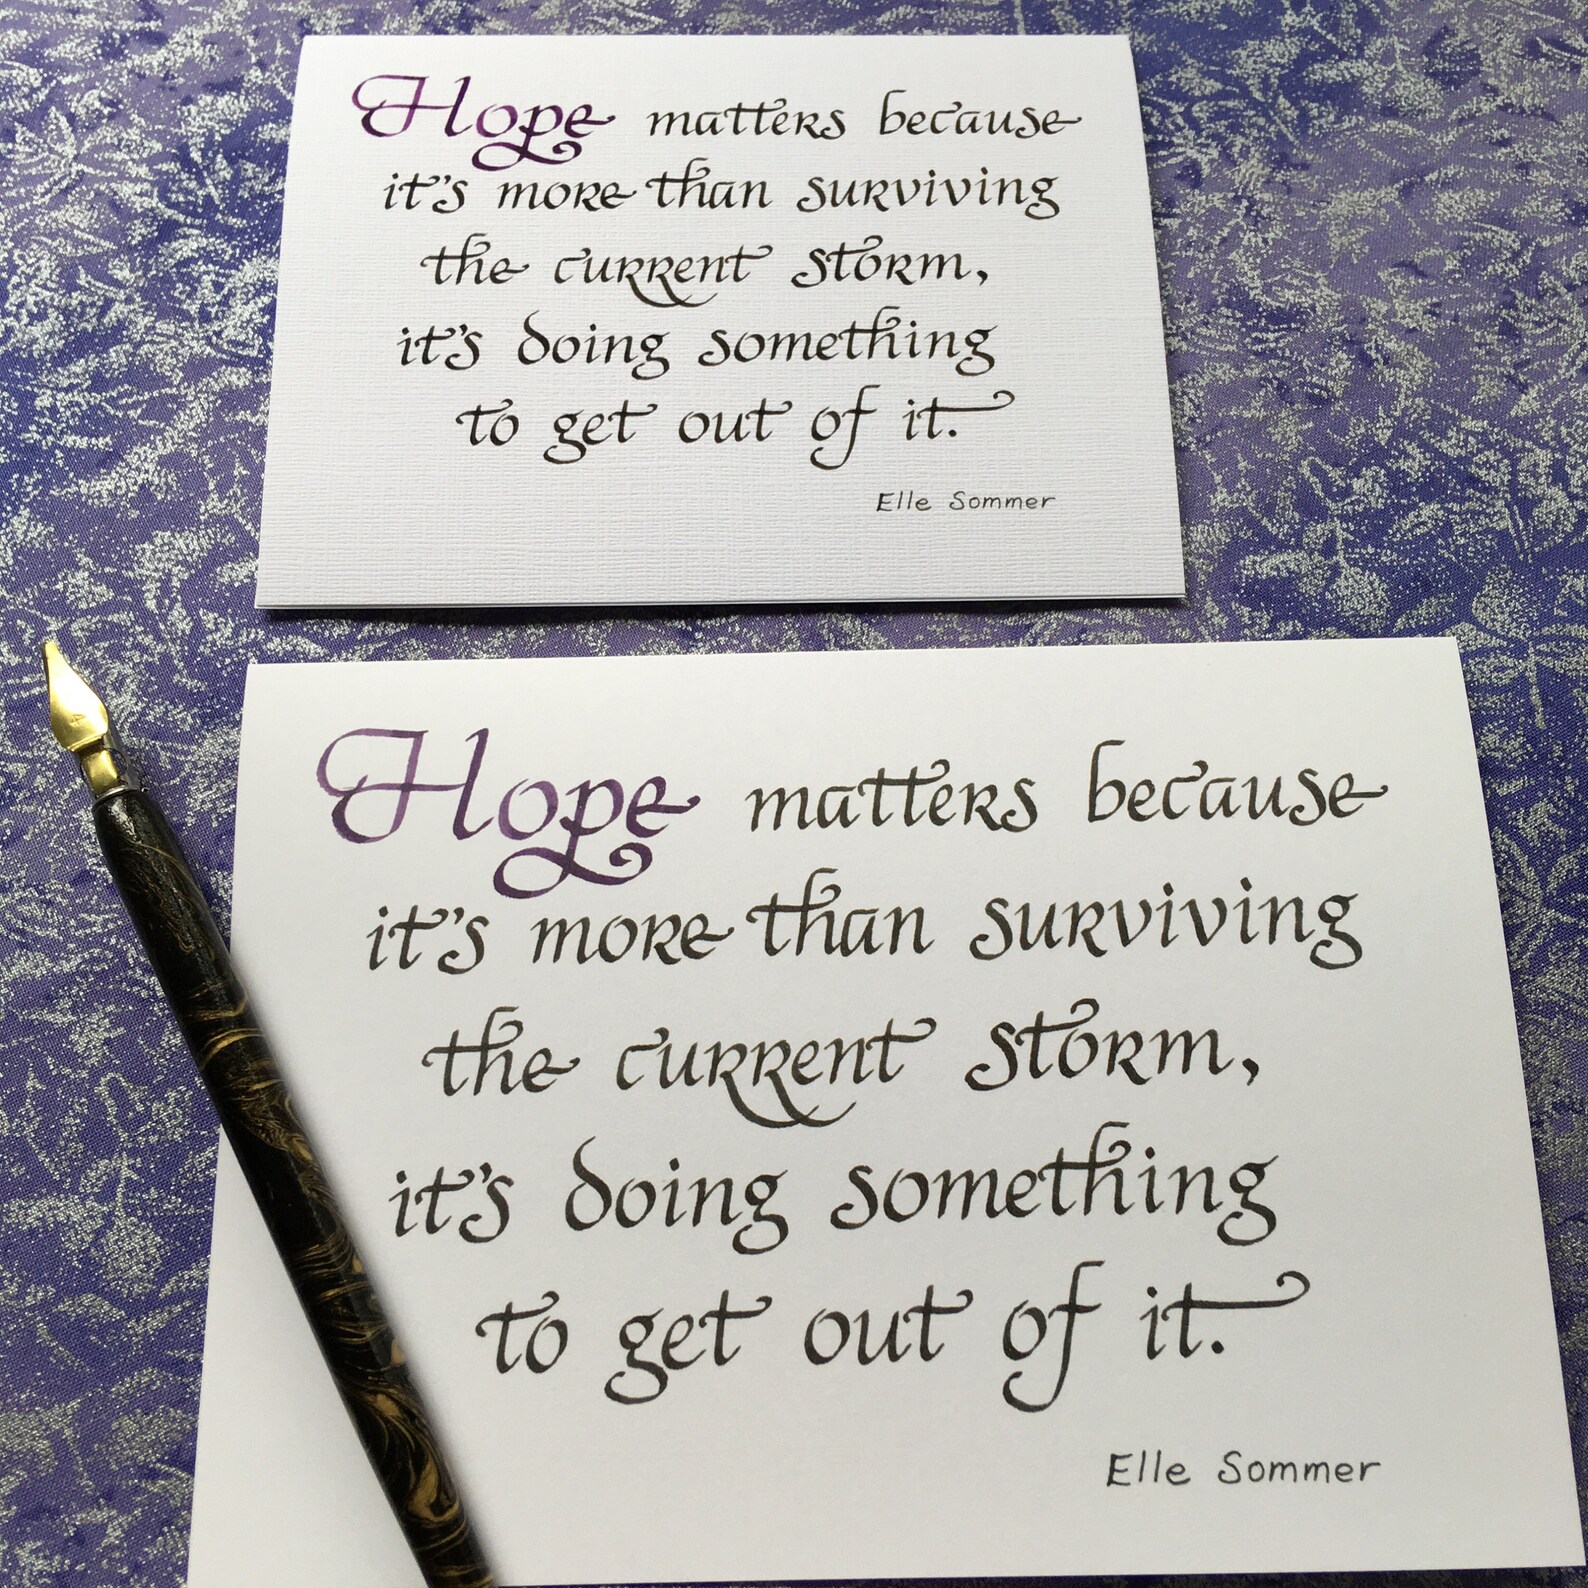 Hope matters because
it's more than surviving
the current storm,
it's doing something
to get out of it.
Elle Sommer
Hope matters because
it's more than surviving
the current storm,
it's doing something
to get out of it.
Elle Sommer